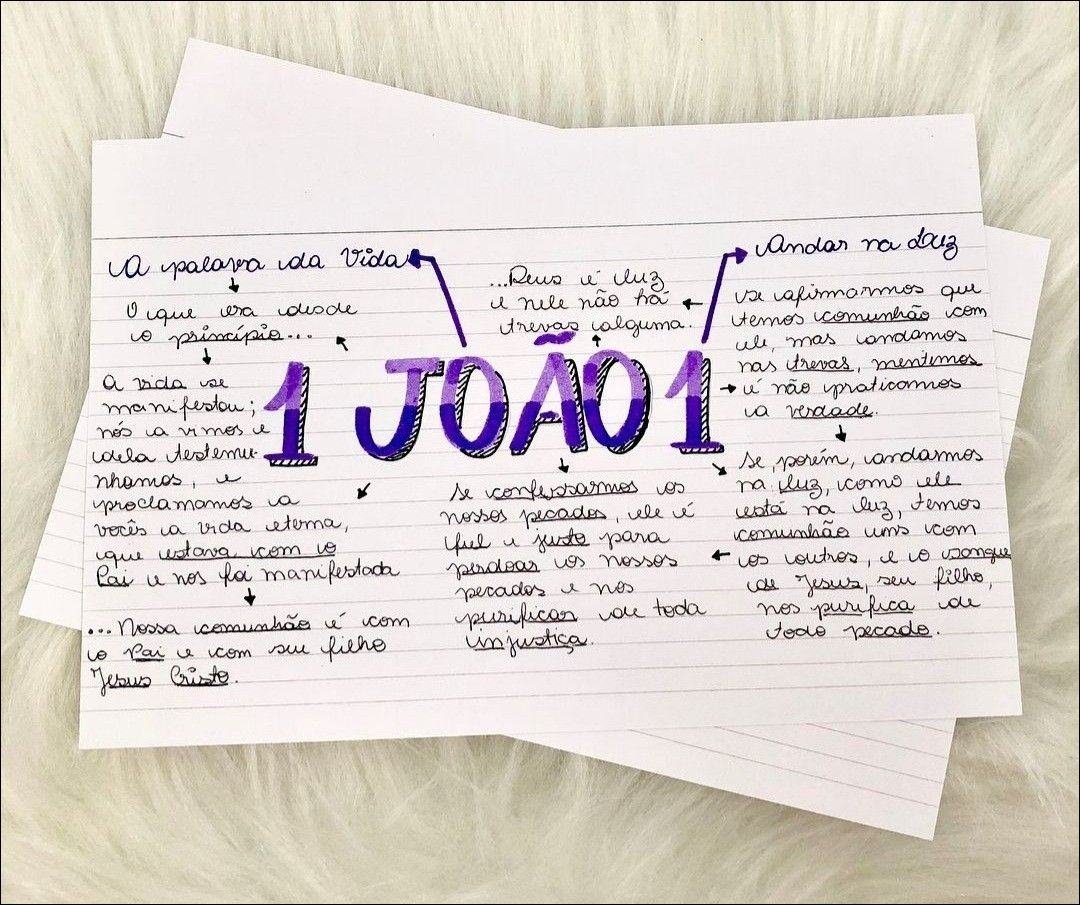 A palavra da Vida
O que era desde
o princípio...
a vida se
manifestou;
nós a vimos e
dela testemu-
nhamos, e
proclamamos a
vocês a vida eterna,
que estava com o
Pai e nos foi manifestada
...Nossa comunhão é com
o Pai e com seu filho
Jesus Cristo.
...Deus é luz
e nele não há
trevas alguma.
1 JOÃO 1
Se confessarmos os
nossos pecados, ele é
fiel e justo para
perdoar os nossos
pecados e nos
purificar de toda
injustiça.
Andar na Luz
se afirmarmos que
temos comunhão com
ele, mas andamos
nas trevas, mentimos
e não praticamos
a verdade.
Se, porém, andarmos
na luz, como ele
está na luz, temos
comunhão uns com
os outros, e o sangue
de Jesus, seu filho,
nos purifica de
todo pecado.